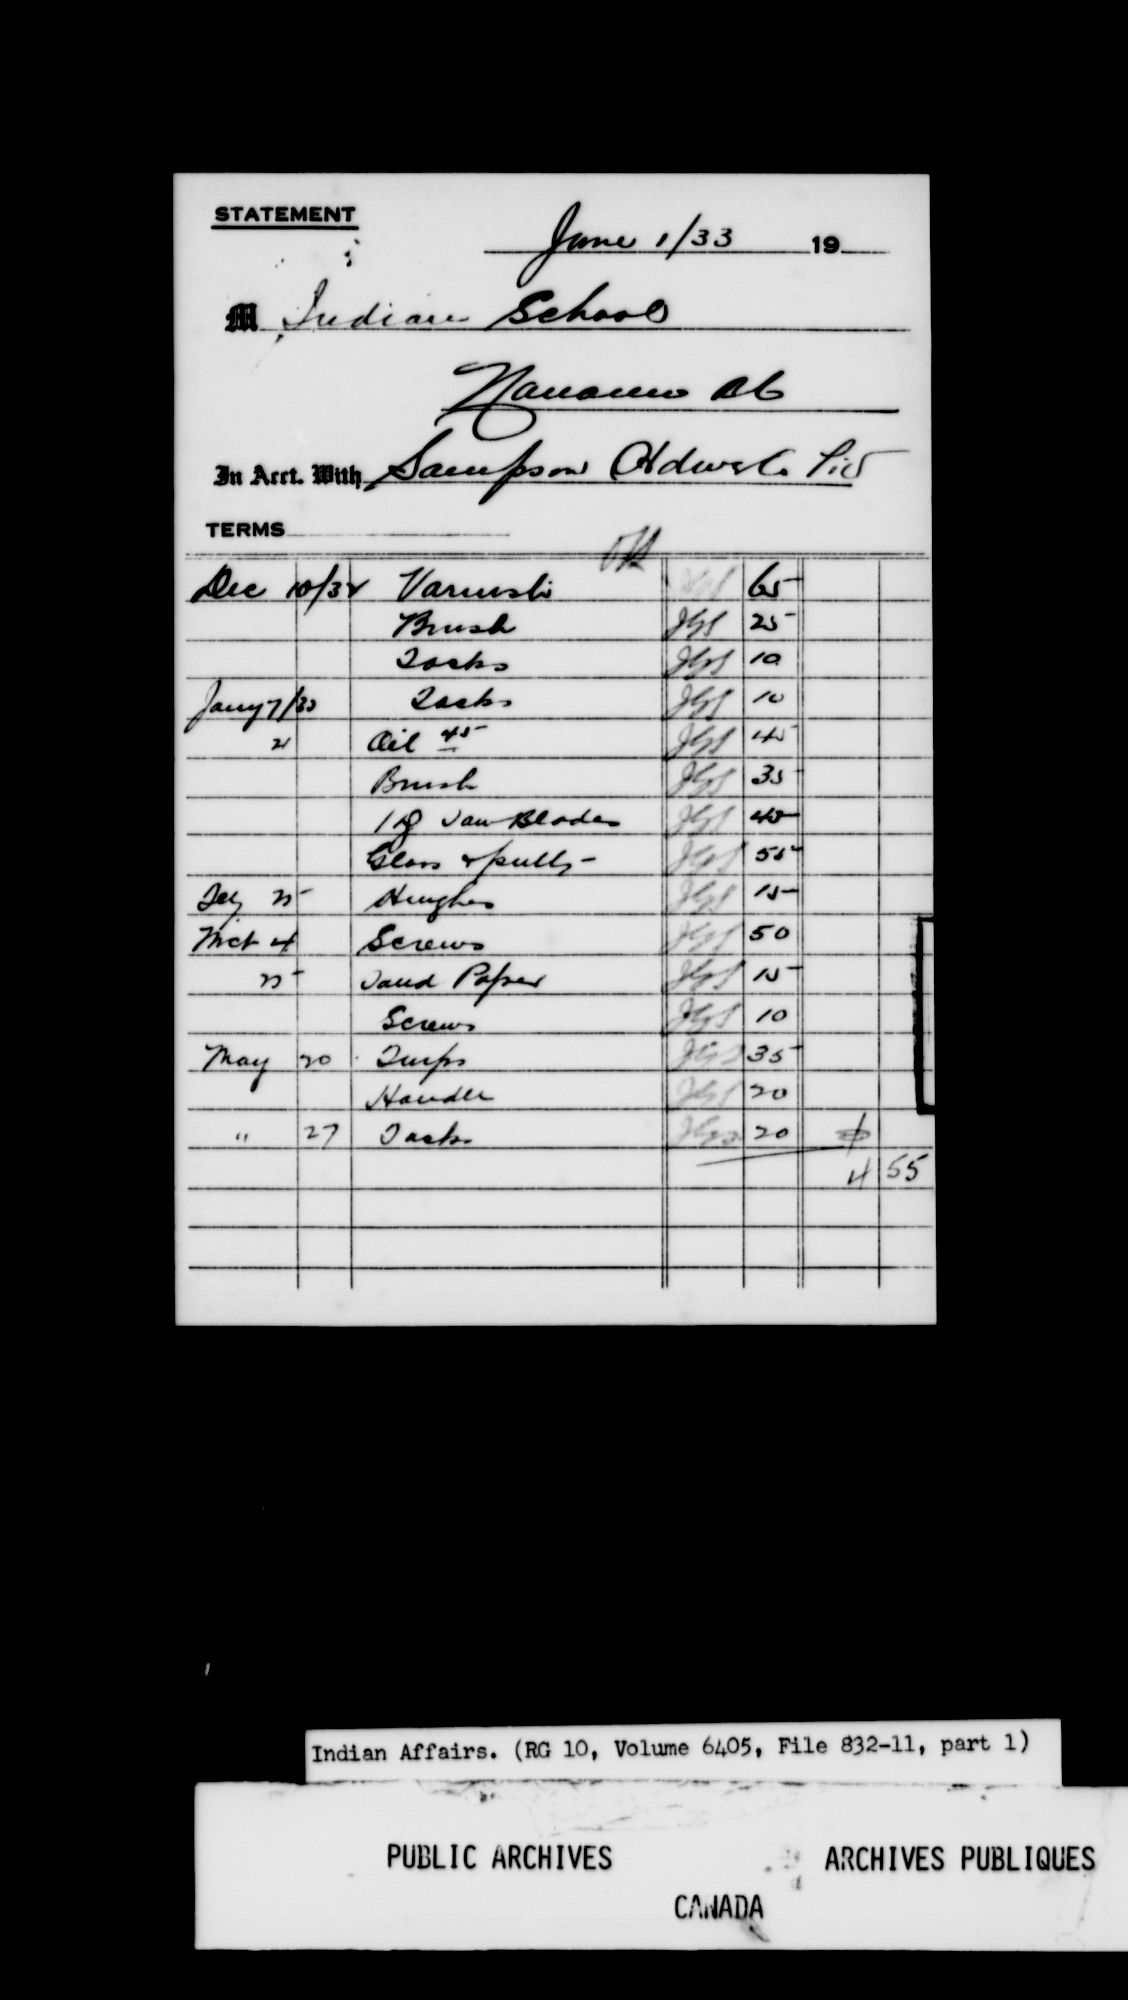 STATEMENT
June 1/33 19
M Indian School
Nanaimo BC
In Acct. With Sampson Hdwe Co Ltd
TERMS
OK
Dec 10/32 Varnish 65
Brush 25
Tacks 10
Jany 7/33 Tacks 10
21 Oil 45 45
Brush 35
Saw Blades 45
Glass & putty 55
Feby 25 Hinges 15
Mch 4 Screws 50
25 Sand Paper 15
Screws 10
May 20 Turps 35
Handle 20
" 27 Tacks 20
4 55
Indian Affairs. (RG 10, Volume 6405, File 832-11, part 1)
PUBLIC ARCHIVES ARCHIVES PUBLIQUES
CANADA